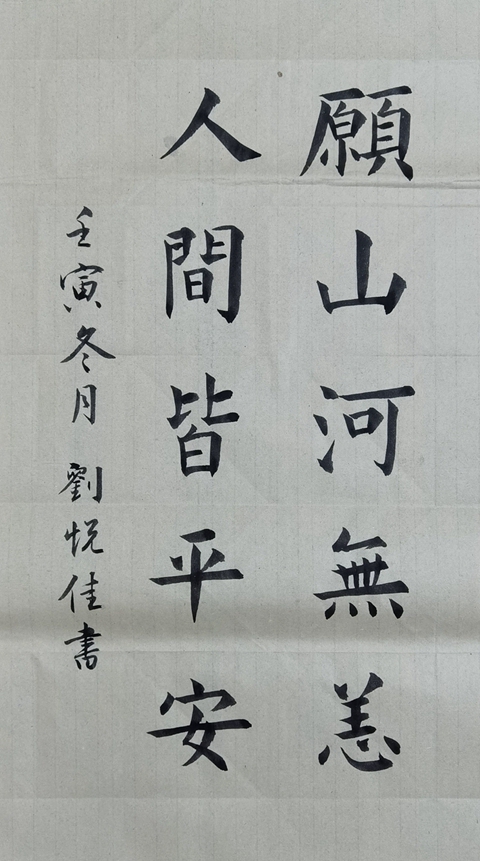 願山河無恙
人間皆平安
壬寅冬月 劉悅佳書